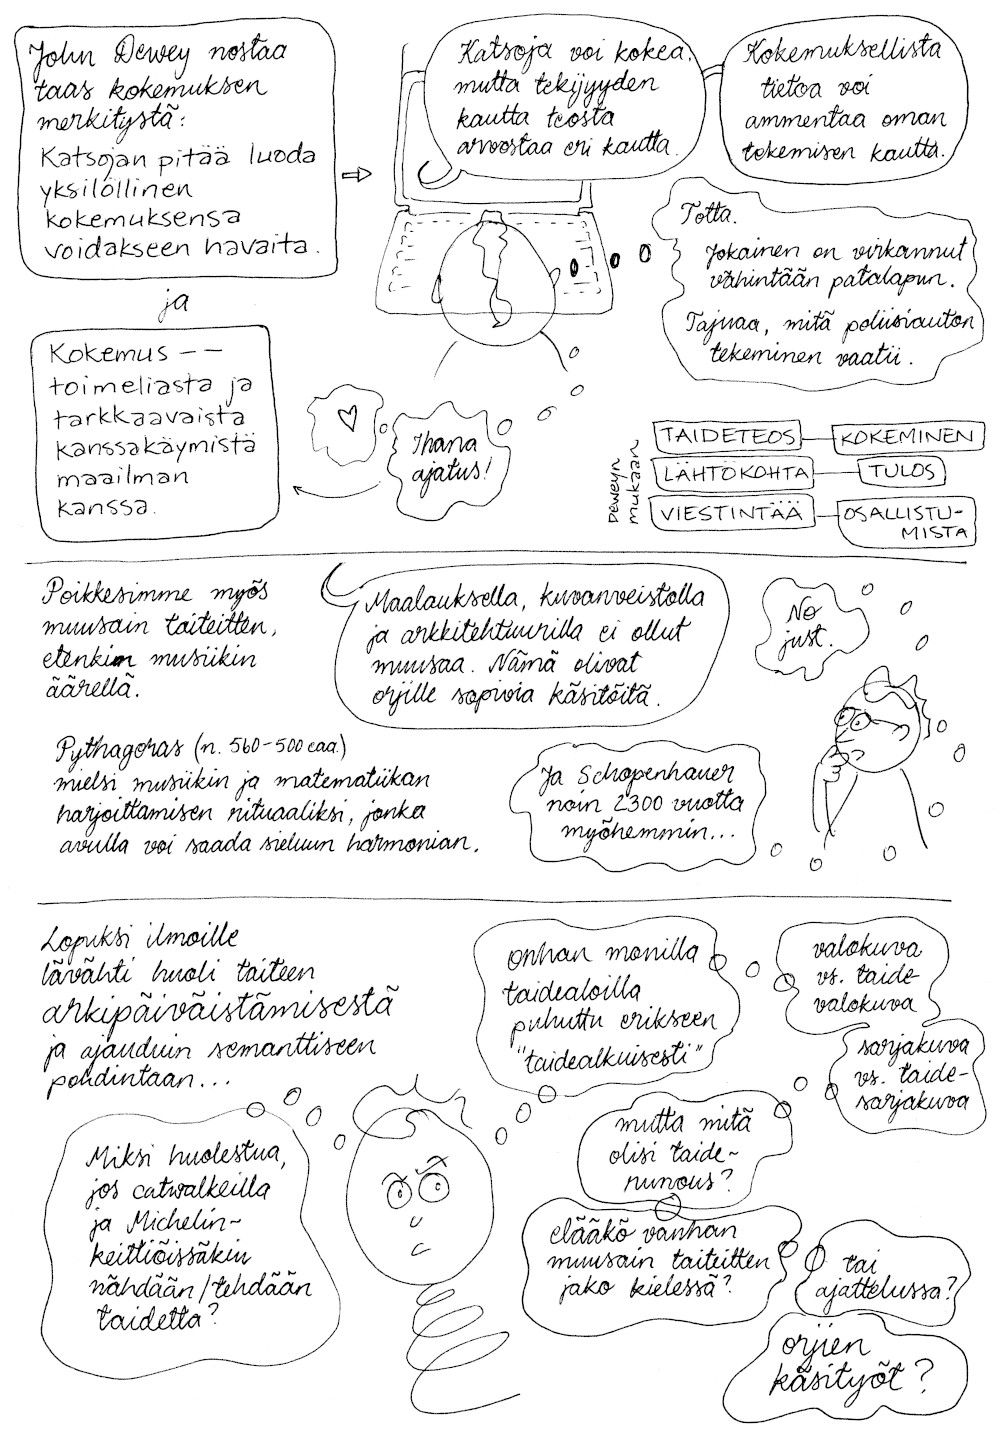 John Dewey nostaa
taas kokemuksen
merkitystä:
Katsojan pitää luoda
yksilöllinen
kokemuksensa
voidakseen havaita.
ja
Kokemus --
toimeliasta ja
tarkkaavaista
kanssakäymistä
maailman
kanssa.
Katsoja voi kokea,
mutta tekijyyden
kautta teosta
arvostaa eri kautta.
Kokemuksellista
tietoa voi
ammentaa oman
tekemisen kautta.
Totta.
Jokainen on virkannut
vähintään patalapun.
Tajuaa, mitä poliisiauton
tekeminen vaatii.
Ihana
ajatus!
Deweyn
mukaan
TAIDETEOS
KOKEMINEN
LÄHTÖKOHTA
TULOS
VIESTINTÄÄ
OSALLISTU-
MISTA
Poikkesimme myös
muusain taiteitten,
etenkin musiikin
äärellä.
Maalauksella, kuvanveistolla
ja arkkitehtuurilla ei ollut
muusaa. Nämä olivat
orjille sopivia käsitöitä.
No
just.
Pythagoras (n. 560-500 eaa.)
mielsi musiikin ja matematiikan
harjoittamisen rituaaliksi, jonka
avulla voi saada sieluun harmonian.
Ja Schopenhauer
noin 2300 vuotta
myöhemmin...
Lopuksi ilmoille
lävähti huoli taiteen
arkipäiväistämisestä
ja ajauduin semanttiseen
pohdintaan...
Miksi huolestua,
jos catwalkeilla
ja Michelin-
keittiöissäkin
nähdään/tehdään
taidetta?
onhan monilla
taidealoilla
puhuttu erikseen
"taidealkuisesti"
valokuva
vs. taide-
valokuva
sarjakuva
vs. taide-
sarjakuva
mutta mitä
olisi taide-
runous?
elääkö vanhan
muusain taiteitten
jako kielessä?
tai
ajattelussa?
orjien
käsityöt?